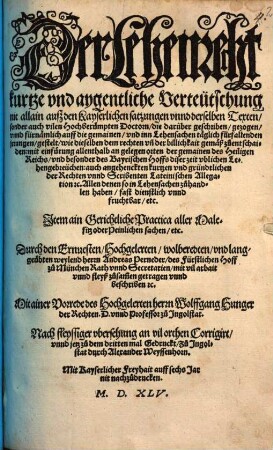 Der Lehenreht
kurtze vnd aygentliche Verteütschung
nit allain auß den Kayserlichen satzungen vnnd derselben Texten /
sonder auch vilen Hochberümpten Doctorn / die darüber geschriben / gezogen /
vnd fürnämlich auff die gemainen / vnd inn Lehensachen täglich fürfallenden
jrrungen / gestelt / wie dieselben dem rechten vñ der billichkeit gemäß zůentschai-
den: mit einfürung allenthalb an gelegen orten der gemainen des Heiligen
Reichs / vnd besonder des Bayrischen Hoffs diser zeit vblichen Le-
hengebreüchen: auch angehenckten kurtzen vnd gründtlichen
der Rechten vnnd Scribenten Lateinischen Allega-
tion ꝛc. Allen denen so in Lehensachen zůhand-
len haben / fast dienstlich vnnd
fruchtbar / etc.
Item ain Gerichtliche Practica aller Male-
fitz oder Peinlichen sachen / etc.
Durch den Ernuesten / Hochgelerten / wolberedten / vnd lang-
geübten weylend herrn Andreas Perneder / des Fürstlichen Hoff
zů München Rath vnnd Secretarien / mit vil arbait
vnnd fleyß zůsamen getragen vnnd
beschriben ꝛc.
Mit ainer Vorrede des Hochgelerten herrn Wolffgang Hunger
der Rechten D. vnnd Professor zů Ingolstat.
Nach fleyssiger vbersehung an vil orthen Corrigirt /
vnnd jetzů dem dritten mal Gedruckt / zů Ingol-
stat durch Alexander Weyssenhorn.
Mit Kayserlicher Freyhait auff sechs Jar
nit nachzůdrucken.
M. D. XLV.